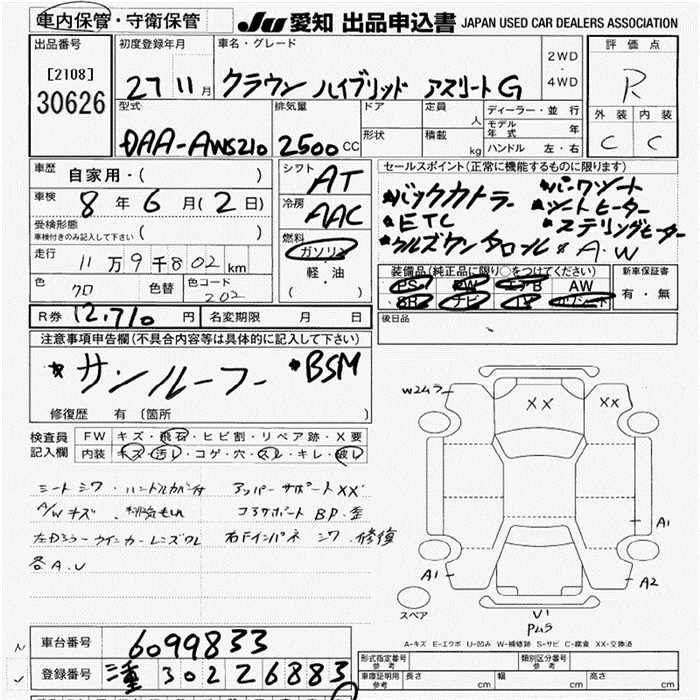 車内保管・守衛保管 JU 愛知 出品申込書 JAPAN USED CAR DEALERS ASSOCIATION
出品番号 初度登録年月 車名・グレード 評価点
[2108] 2WD
30626 27 11月 クラウン ハイブリッド アスリートG 4WD R
型式 排気量 ドア 定員 人 ディーラー・並行 外装 内装
モデル年式 年
DAA-AWS210 2500cc 形状 積載 kg ハンドル 左・右 C C
車歴 自家用・( ) シフト AT セールスポイント(正常に機能するものに限ります)
車検 8年6月(2日) 冷房 AAC *バックカメラー *パークソート
受検形態 *ETC *シートヒーター
車検付きのみ記入して下さい ( ) 燃料 *ステリングヒーター
走行 ガソリン *クルズコンタロール *A.W
11万9千802km 軽・油 装備品(純正品に限り○をつけてください) 新車保証書
色 クロ 色替 色コード 202 ( ) PS PW エアB AW 有・無
SR ナビ TV
R券 12,710円 名変期限 月 日 後日品
注意事項申告欄(不具合内容等は具体的に記入して下さい)
*サンルーフー *BSM
修復歴 有 〔箇所 〕
検査員 FW キズ・飛石・ヒビ割・リペア跡・X要
記入欄 内装 キズ・汚レ・コゲ・穴・スレ・キレ・破レ
シートシワ・ハンドルカバー付 アッパーサポートXX
A/Wキズ コアサポートBP・歪
ウインカーレンズワレ 右Fインパネ シワ・修復
各A.U
W2ムラ XX XX
A1
A1 A2
スペア V1
Pムラ
A-キズ E-エクボ U-凹み W-補修跡 S-サビ C-腐食 XX-交換済
車台番号 6099833 形式指定番号 参考 類別区分番号 参考
登録番号 三重 302 26883 車庫証明用 参考 長さ cm 幅 cm 高さ cm